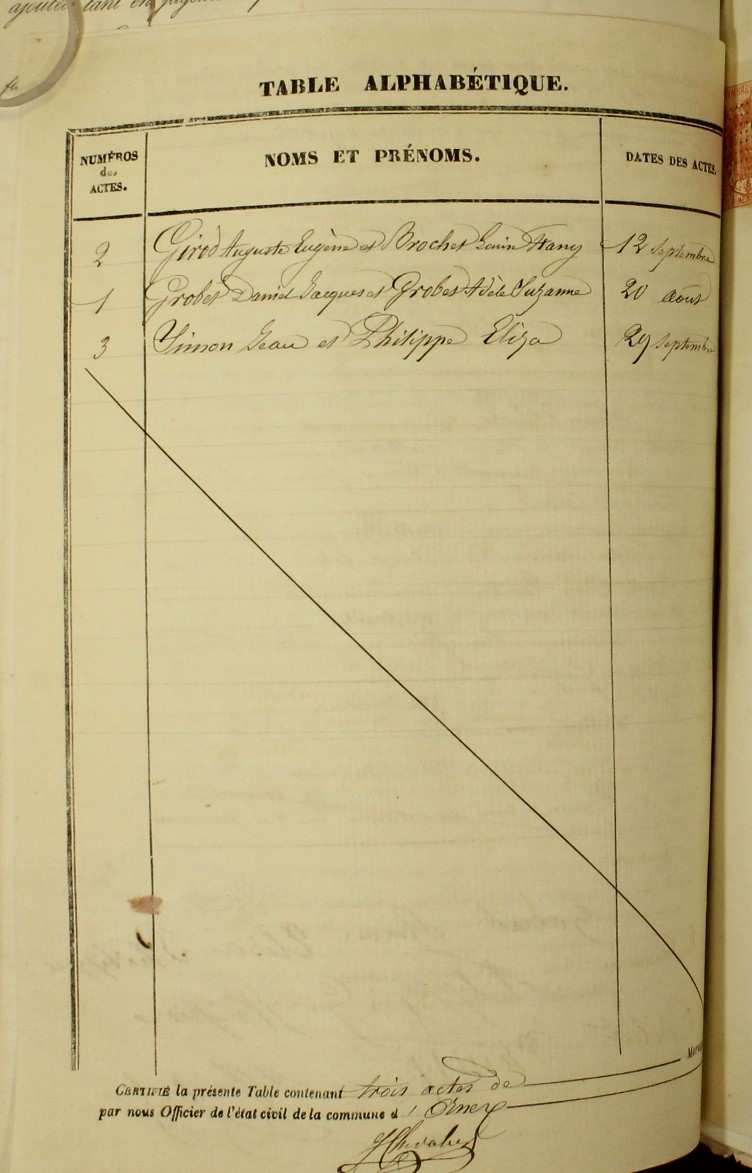 TABLE ALPHABÉTIQUE.
NUMÉROS des ACTES.
NOMS ET PRÉNOMS.
DATES DES ACTES.
2 Girod Auguste Eugène et Brochet Fany 12 septembre
1 Grobet Daniel Jacques et Grobet Adèle Suzanne 20 août
3 Simon Jean et Philippe Eliza 29 septembre
CERTIFIÉ la présente Table contenant trois actes de
par nous Officier de l'état civil de la commune d' Ornex